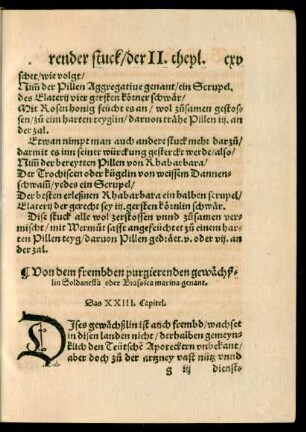 render stuck/der II. theyl. cxv
schet/wie volgt/
Nim̃ der Pillen Aggregative genant/ein Scrupel,
des Elaterij vier gersten körner schwär/
Mit Rosen honig feücht es an/ wol zůsamen gestos
sen/zů eim harten teyglin/darvon träbe Pillen iij. an
der zal.
Etwan nimpt man auch andere stuck mehr darzů/
darmit es inn seiner würckung gesterckt werde/also/
Nim̃ der bereytten Pillen von Rhabarbara/
Der Trochiscen oder kügelin von weissem Dannen
schwam̃/yedes ein Scrupel/
Der besten erleßnen Rhabarbara ein halben scrupel/
Elaterij der gerecht sey iij. gersten körnlin schwär.
Dise stuck alle wol zerstossen vnnd zůsamen ver
mischt/ mit Wermůt safft angefeüchtet zů einem har
ten Pillen teyg/daruon Pillen gedräet. v. oder vij. an
der zal.
¶ Von dem frembden purgierenden gewächß
lin Soldanella oder Brassica marina genant.
Das XXIII. Capitel.
DIses gewächßlin ist auch frembd/wachset
in disen landen nicht/derhalben gemeyn
klich den Teütschẽ Apoteckern vnbekant/
aber doch zů der artzney vast nütz vnnd
g iij dienst⸗